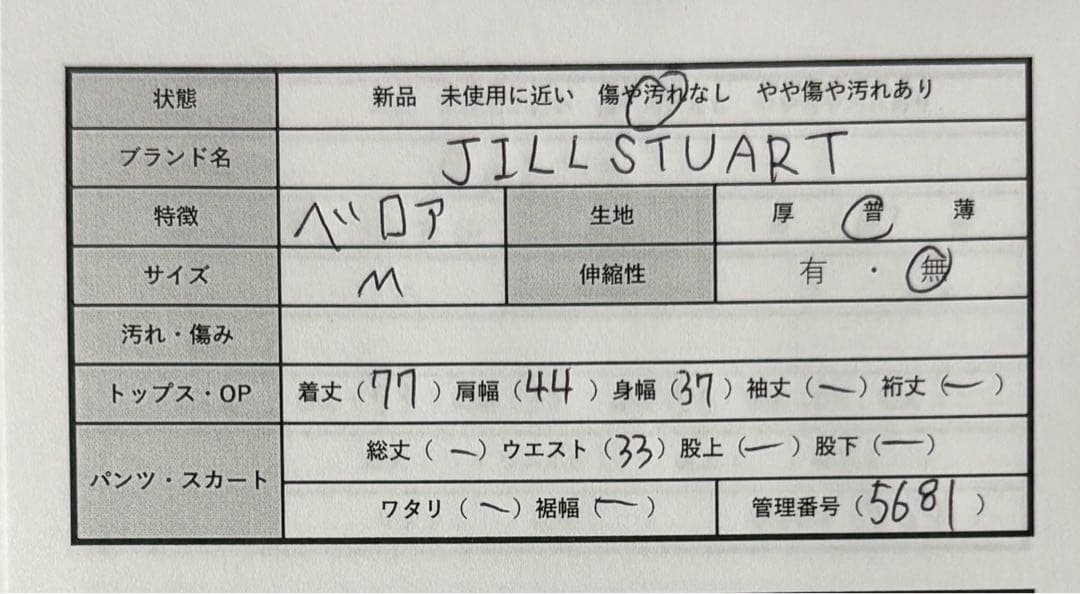 状態 新品 未使用に近い 傷や汚れなし やや傷や汚れあり
ブランド名 JILLSTUART
特徴 ベロア 生地 厚 普 薄
サイズ M 伸縮性 有 ・ 無
汚れ・傷み
トップス・OP 着丈(77)肩幅(44)身幅(37)袖丈(ー)裄丈(ー)
パンツ・スカート 総丈(ー)ウエスト(33)股上(ー)股下(ー)
ワタリ(ー)裾幅(ー) 管理番号(5681)